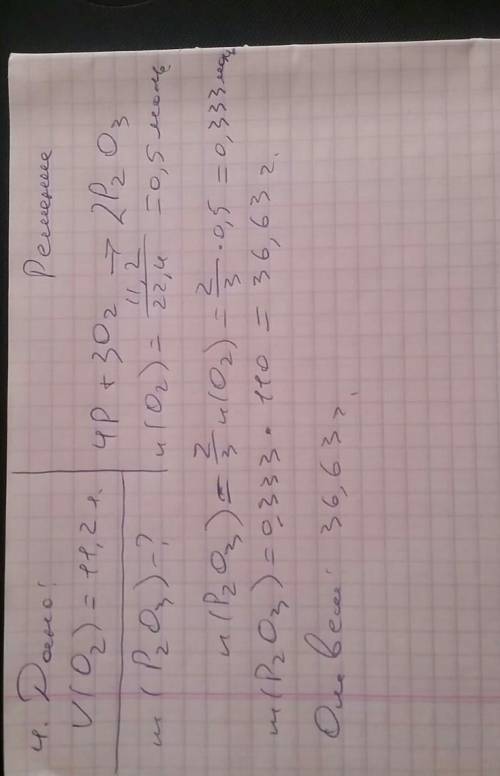 4. Дано:
V(O2) = 11,2 л.
m (P2O3) - ?
Решение
4P + 3O2 → 2P2O3
n(O2) = 11,2/22,4 = 0,5 моль
n(P2O3) = 2/3 n(O2) = 2/3 · 0,5 = 0,333 моль
m(P2O3) = 0,333 · 110 = 36,63 г.
Ответ: 36,63 г.